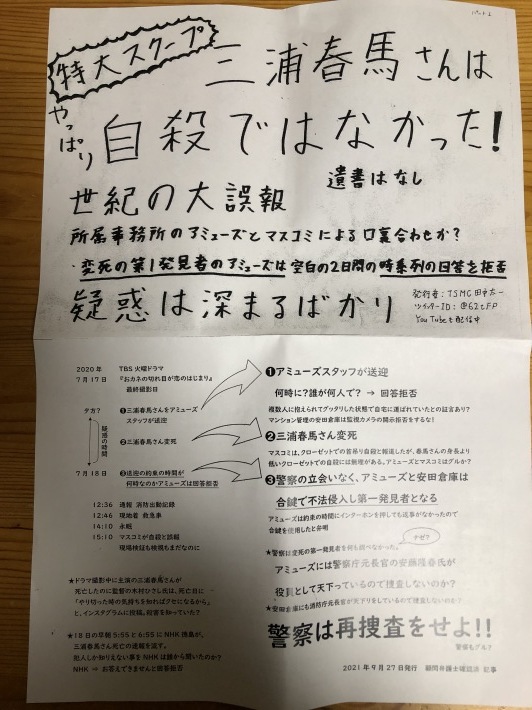 パート1
特大スクープ
三浦春馬さんは
やっぱり
自殺ではなかった!
遺書はなし
世紀の大誤報
所属事務所のアミューズとマスコミによる口裏合わせか?
・変死の第1発見者のアミューズは空白の2日間の時系列の回答を拒否
疑惑は深まるばかり
発行者:TSMC田中太一
ツイッターID:
YouTubeも配信中
2020年
7月17日
TBS 火曜ドラマ
『おカネの切れ目が恋のはじまり』
最終撮影日
夕方?
①三浦春馬さんをアミューズ
スタッフが送迎
疑惑の時間
②三浦春馬さん変死
7月18日
③送迎の約束の時間が
何時なのかアミューズは回答拒否
12:36 通報 消防出動記録
12:46 現地着 救急車
14:10 永眠
15:10 マスコミが自殺と誤報
現場検証も検視もまだなのに
★ドラマ撮影中に主演の三浦春馬さんが
死亡したのに監督の木村ひさし氏は、死亡日に
「やり切った時の気持ちを知ればクセになるから」
と、インスタグラムに投稿。殺害を知っていた?
★18日の早朝5:55と6:55にNHK徳島が、
三浦春馬さん死亡の速報を流す。
犯人しか知りえない事をNHKは誰から聞いたのか?
NHK ⇒ お答えできませんと回答拒否
❶アミューズスタッフが送迎
何時に?誰が何人で? → 回答拒否
複数人に抱えられてグッタリした状態で自宅に運ばれていたとの証言あり?
マンション管理の安田倉庫は監視カメラの開示拒否をするな!
❷三浦春馬さん変死
マスコミは、クローゼットでの首吊り自殺と報道したが、春馬さんの身長より
低いクローゼットでの自殺には無理がある。アミューズとマスコミはグルか?
❸警察の立会いなく、アミューズと安田倉庫は
合鍵で不法侵入し第一発見者となる
アミューズは約束の時間にインターホンを押しても返事がなかったので
合鍵を使用したと弁明
★警察は変死の第一発見者を何も調べなかった。
ナゼ?
アミューズには警察庁元長官の安藤隆春氏が
役員として天下っているので捜査しないのか?
★安田倉庫にも消防庁元長官が天下りをしているので捜査しないのか?
警察は再捜査をせよ!!
警察もグル?
2021年9月27日発行 顧問弁護士確認済 記事